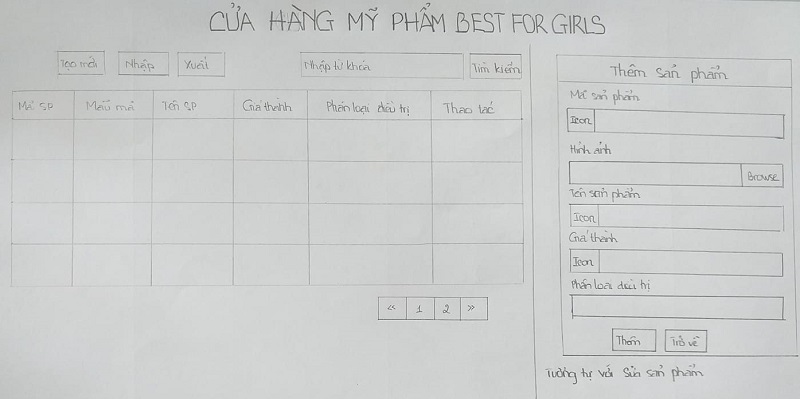 CỬA HÀNG MỸ PHẨM BEST FOR GIRLS
Tạo mới
Nhập
Xuất
Nhập từ khóa
Tìm kiếm
Mã SP
Mẫu mã
Tên SP
Giá thành
Phân loại điều trị
Thao tác
«
1
2
»
Thêm sản phẩm
Mã sản phẩm
Icon
Hình ảnh
Browse
Tên sản phẩm
Icon
Giá thành
Icon
Phân loại điều trị
Thêm
Trở về
Tương tự với Sửa sản phẩm